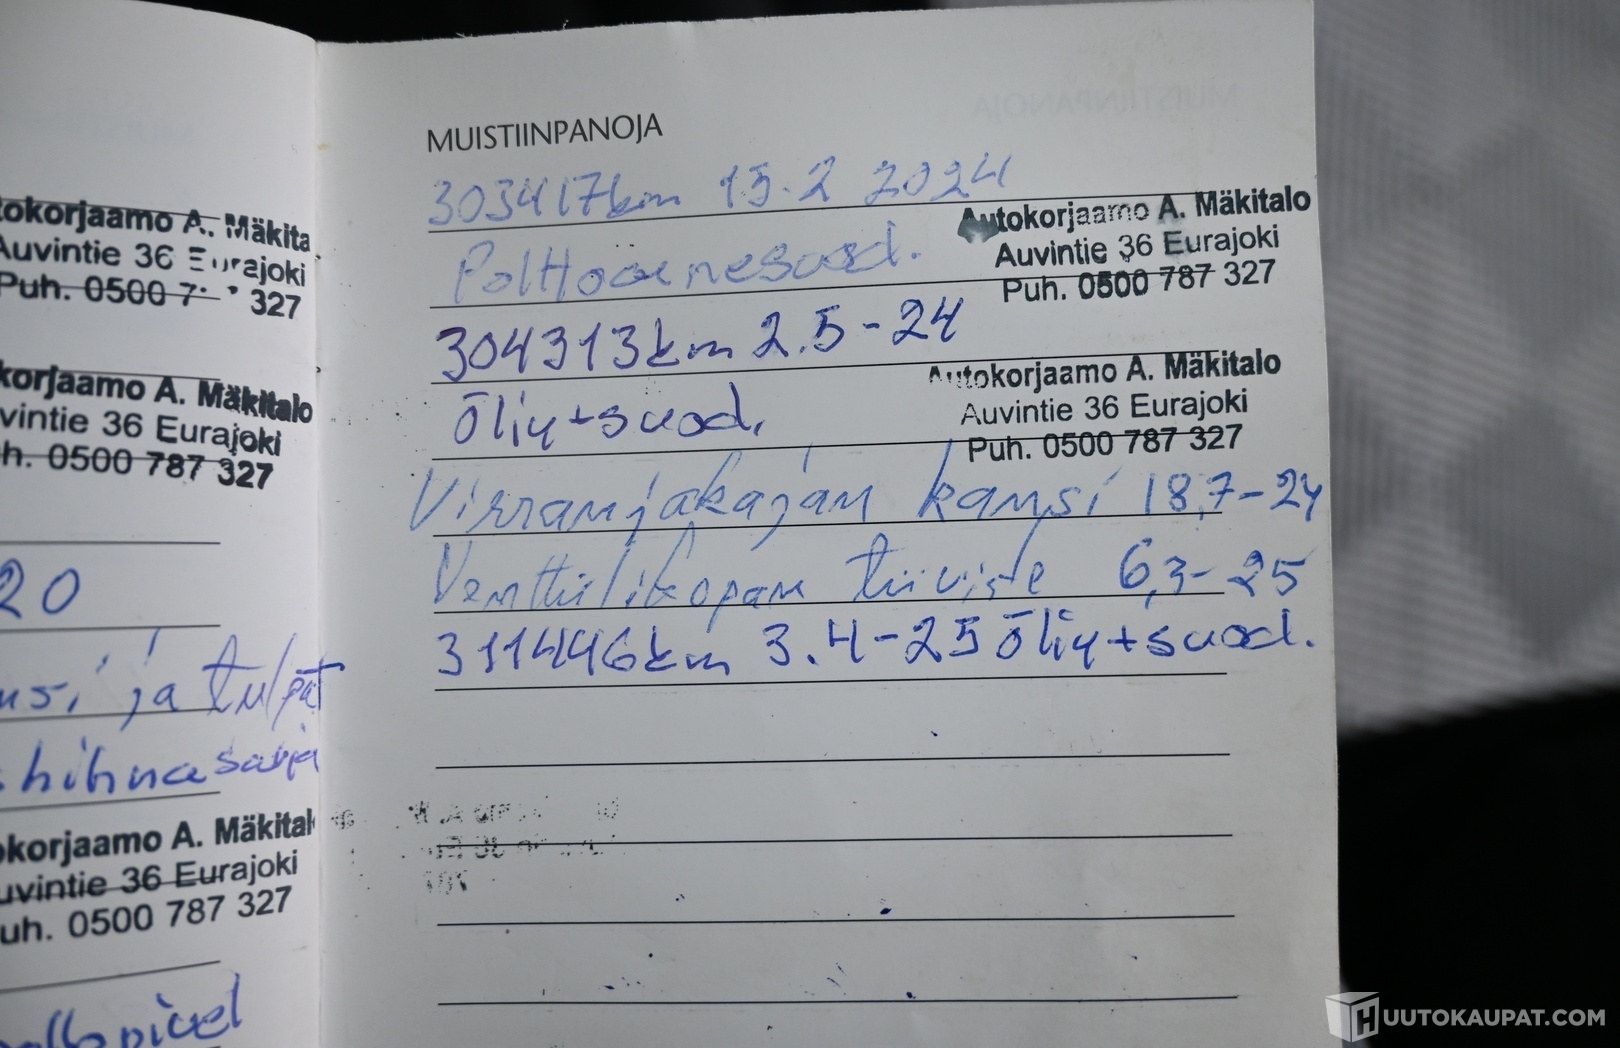 Mäkita
Auvintie 36
rajoki
Puh. 0500
327
korjaamo A. Mäkitalo
36 Eurajoki
0500 787 327
20
ja tulpat
hihnasarja
korjaamo A. Mäkital
36 Eurajoki
0500 787 327
MUISTIINPANOJA
303417km 15.2 2024
Autokorjaamo A. Mäkitalo
Auvintie 36 Eurajoki
Puh. 0500 787 327
Polttoainesuod.
304313km 2.5-24
Autokorjaamo A. Mäkitalo
Auvintie 36 Eurajoki
Puh. 0500 787 327
Öljy+suod.
Virranjakajan kansi 18,7-24
Venttiilikopan tiiviste 6,3-25
311446km 3.4-25 Öljy+suod.
HUUTOKAUPAT.COM